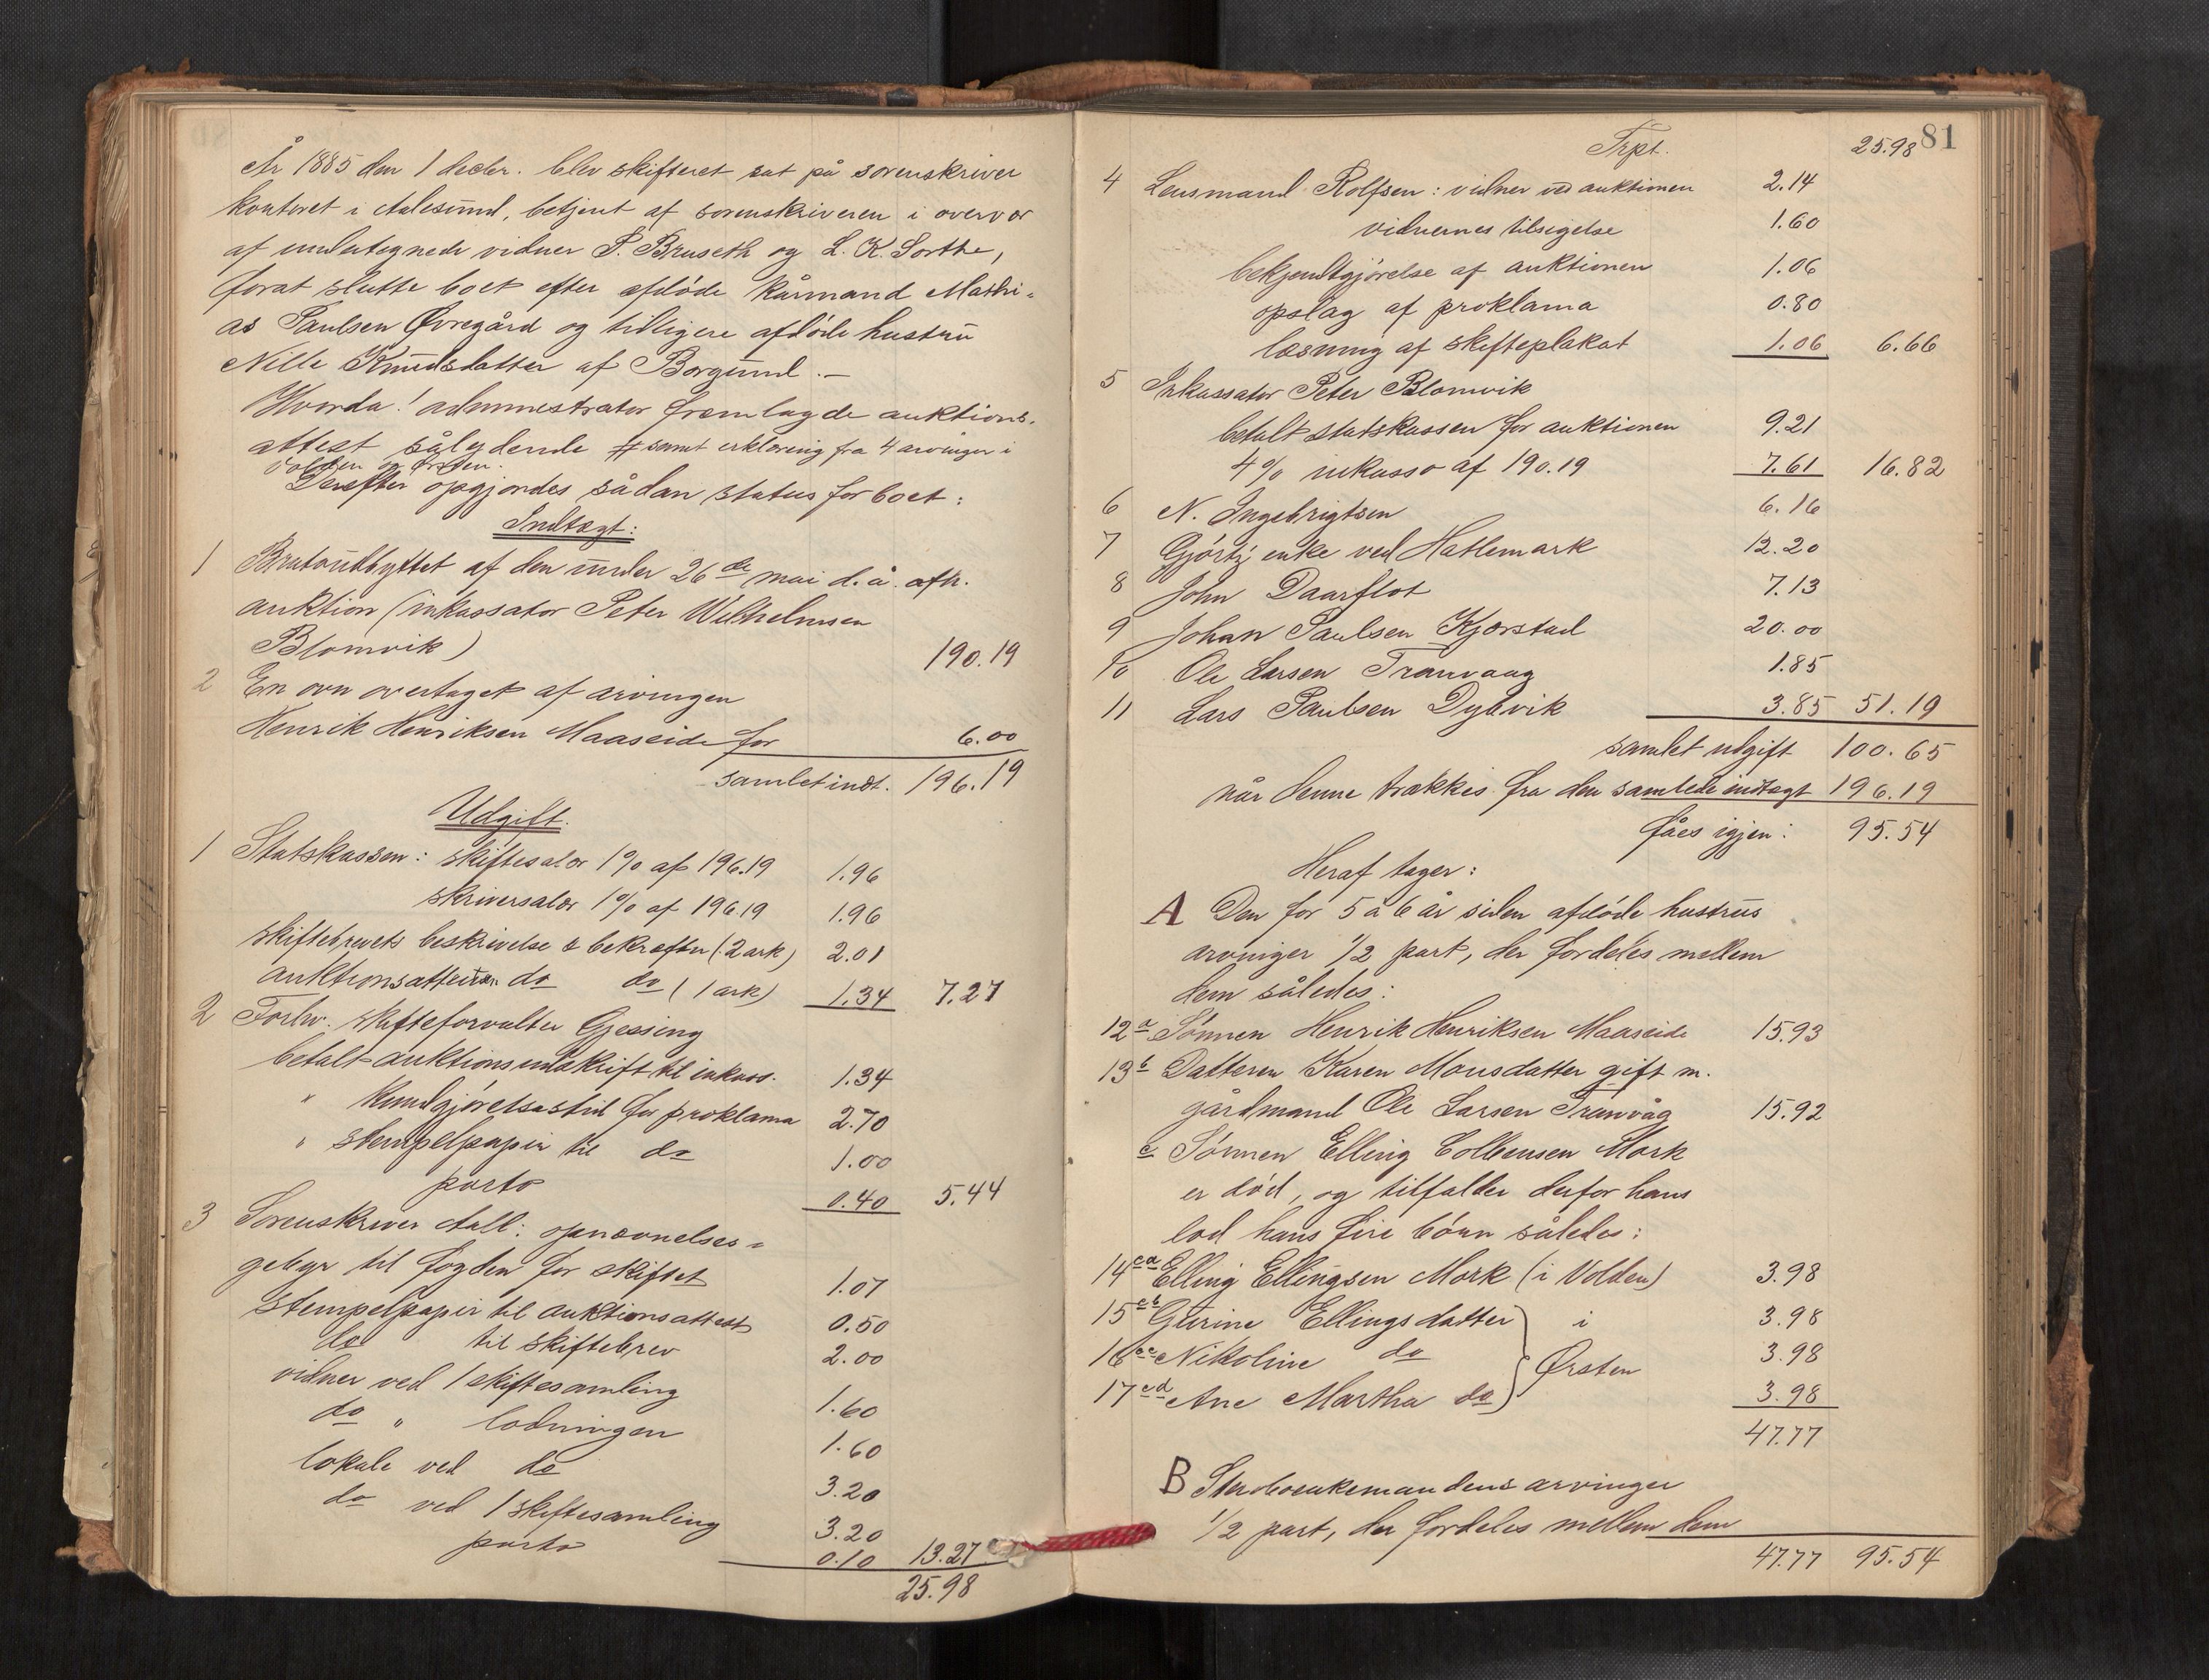 År 1885 den 1 decbr. blev skifteret sat på sorenskriver
kontoret i Aalesund, betjent af sorenskriveren i overvær
af undertegnede vidner P. Bruseth og L. K. Sorthe,
forat slutte boet efter afdöde kårmand Mathi-
as Paulsen Øvregård og tidligere afdöde hustru
Nille Knudsdatter af Borgund. –
Hvorda! administrator fremlagde auktions-
attest sålydende # samt erklæring fra 4 arvinger i
Volden og Ørsten.
Derefter opgjordes sådan status for boet:
Indtægt:
1 Brutoudbyttet af den under 26de mai d. å. afh.
auktion (inkassator Peter Wilhelmsen
Blomvik) 190.19
2 En ovn overtaget af arvingen
Henrik Henriksen Maaseide for 6.00
samlet indt. 196.19
Udgift.
1 Statskassen: skiftesalær 1% af 196.19 1.96
skriversalær 1% af 196.19 1.96
skiftebrevets beskrivelse & bekræften (2 ark) 2.01
auktionsattestens do do (1 ark) 1.34 7.27
2 Forhv. skifteforvalter Gjessing
betalt auktionsudskrift til inkass. 1.34
" kundgjörelsestid for proklama 2.70
" stempelpapir til do 1.00
porto 0.40 5.44
3 Sorenskriver Aall: opnævnelses-
gebyr til fogden for skiftet 1.07
stempelpapir til auktionsattest 0.50
do til skiftebrev 2.00
vidner ved 1 skiftesamling 1.60
do " lodningen 1.60
lokale ved do 3.20
do ved 1 skiftesamling 3.20
porto 0.10 13.27
25.98
81
Trpt. 25.98
4 Lensmand Rolfsen: vidner ved auktionen 2.14
vidnernes tilsigelse 1.60
bekjendtgjörelse af auktionen 1.06
opslag af proklama 0.80
læsning af skifteplakat 1.06 6.66
5 Inkassator Peter Blomvik
betalt statskassen for auktionen 9.21
4% inkasso af 190.19 7.61 16.82
6 N. Ingebrigtsen 6.16
7 Gjörts enke ved Hatlemark 12.20
8 John Daarflot 7.13
9 Johan Paulsen Kjærstad 20.00
10 Ole Larsen Tranvaag 1.85
11 Lars Paulsen Dybvik 3.85 51.19
samlet udgift 100.65
når denne trækkes fra den samlede indtægt 196.19
fåes igjen: 95.54
Heraf tager:
A Den for 5 à 6 år siden afdöde hustrus
arvinger 1/2 part, der fordeles mellem
dem således:
12 a Sönnen Henrik Henriksen Maaseide 15.93
13 b Datteren Karen Monsdatter gift m.
gårdmand Ole Larsen Tranvåg 15.92
c Sönnen Elling Colbensen Mork
er död, og tilfalder derfor hans
lod hans fire börn således:
14 ca Elling Ellingsen Mork (i Volden) 3.98
15 cb Gurine Ellingsdatter } i 3.98
16 cc Nikoline do } Ørsten 3.98
17 cd Ane Martha do } 3.98
47.77
B Sterboenkemandens arvinger
1/2 part, der fordeles mellem dem
47.77 95.54